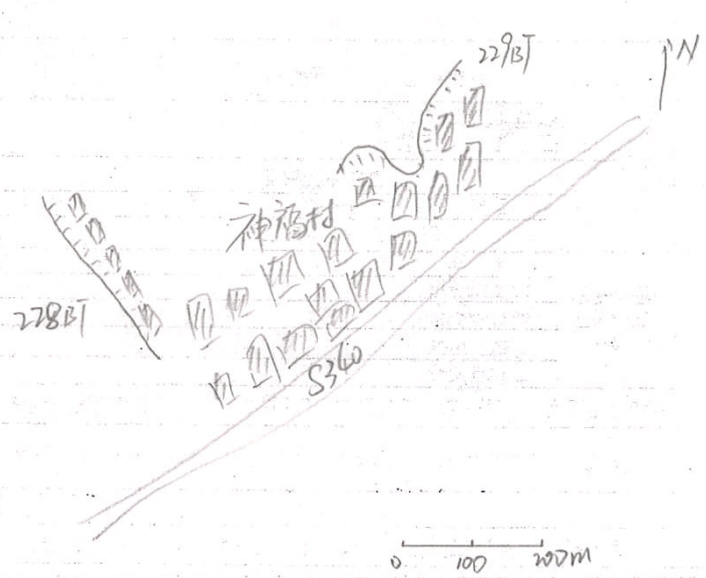 229BT
N
神福村
228BT
S340
0 100 200m